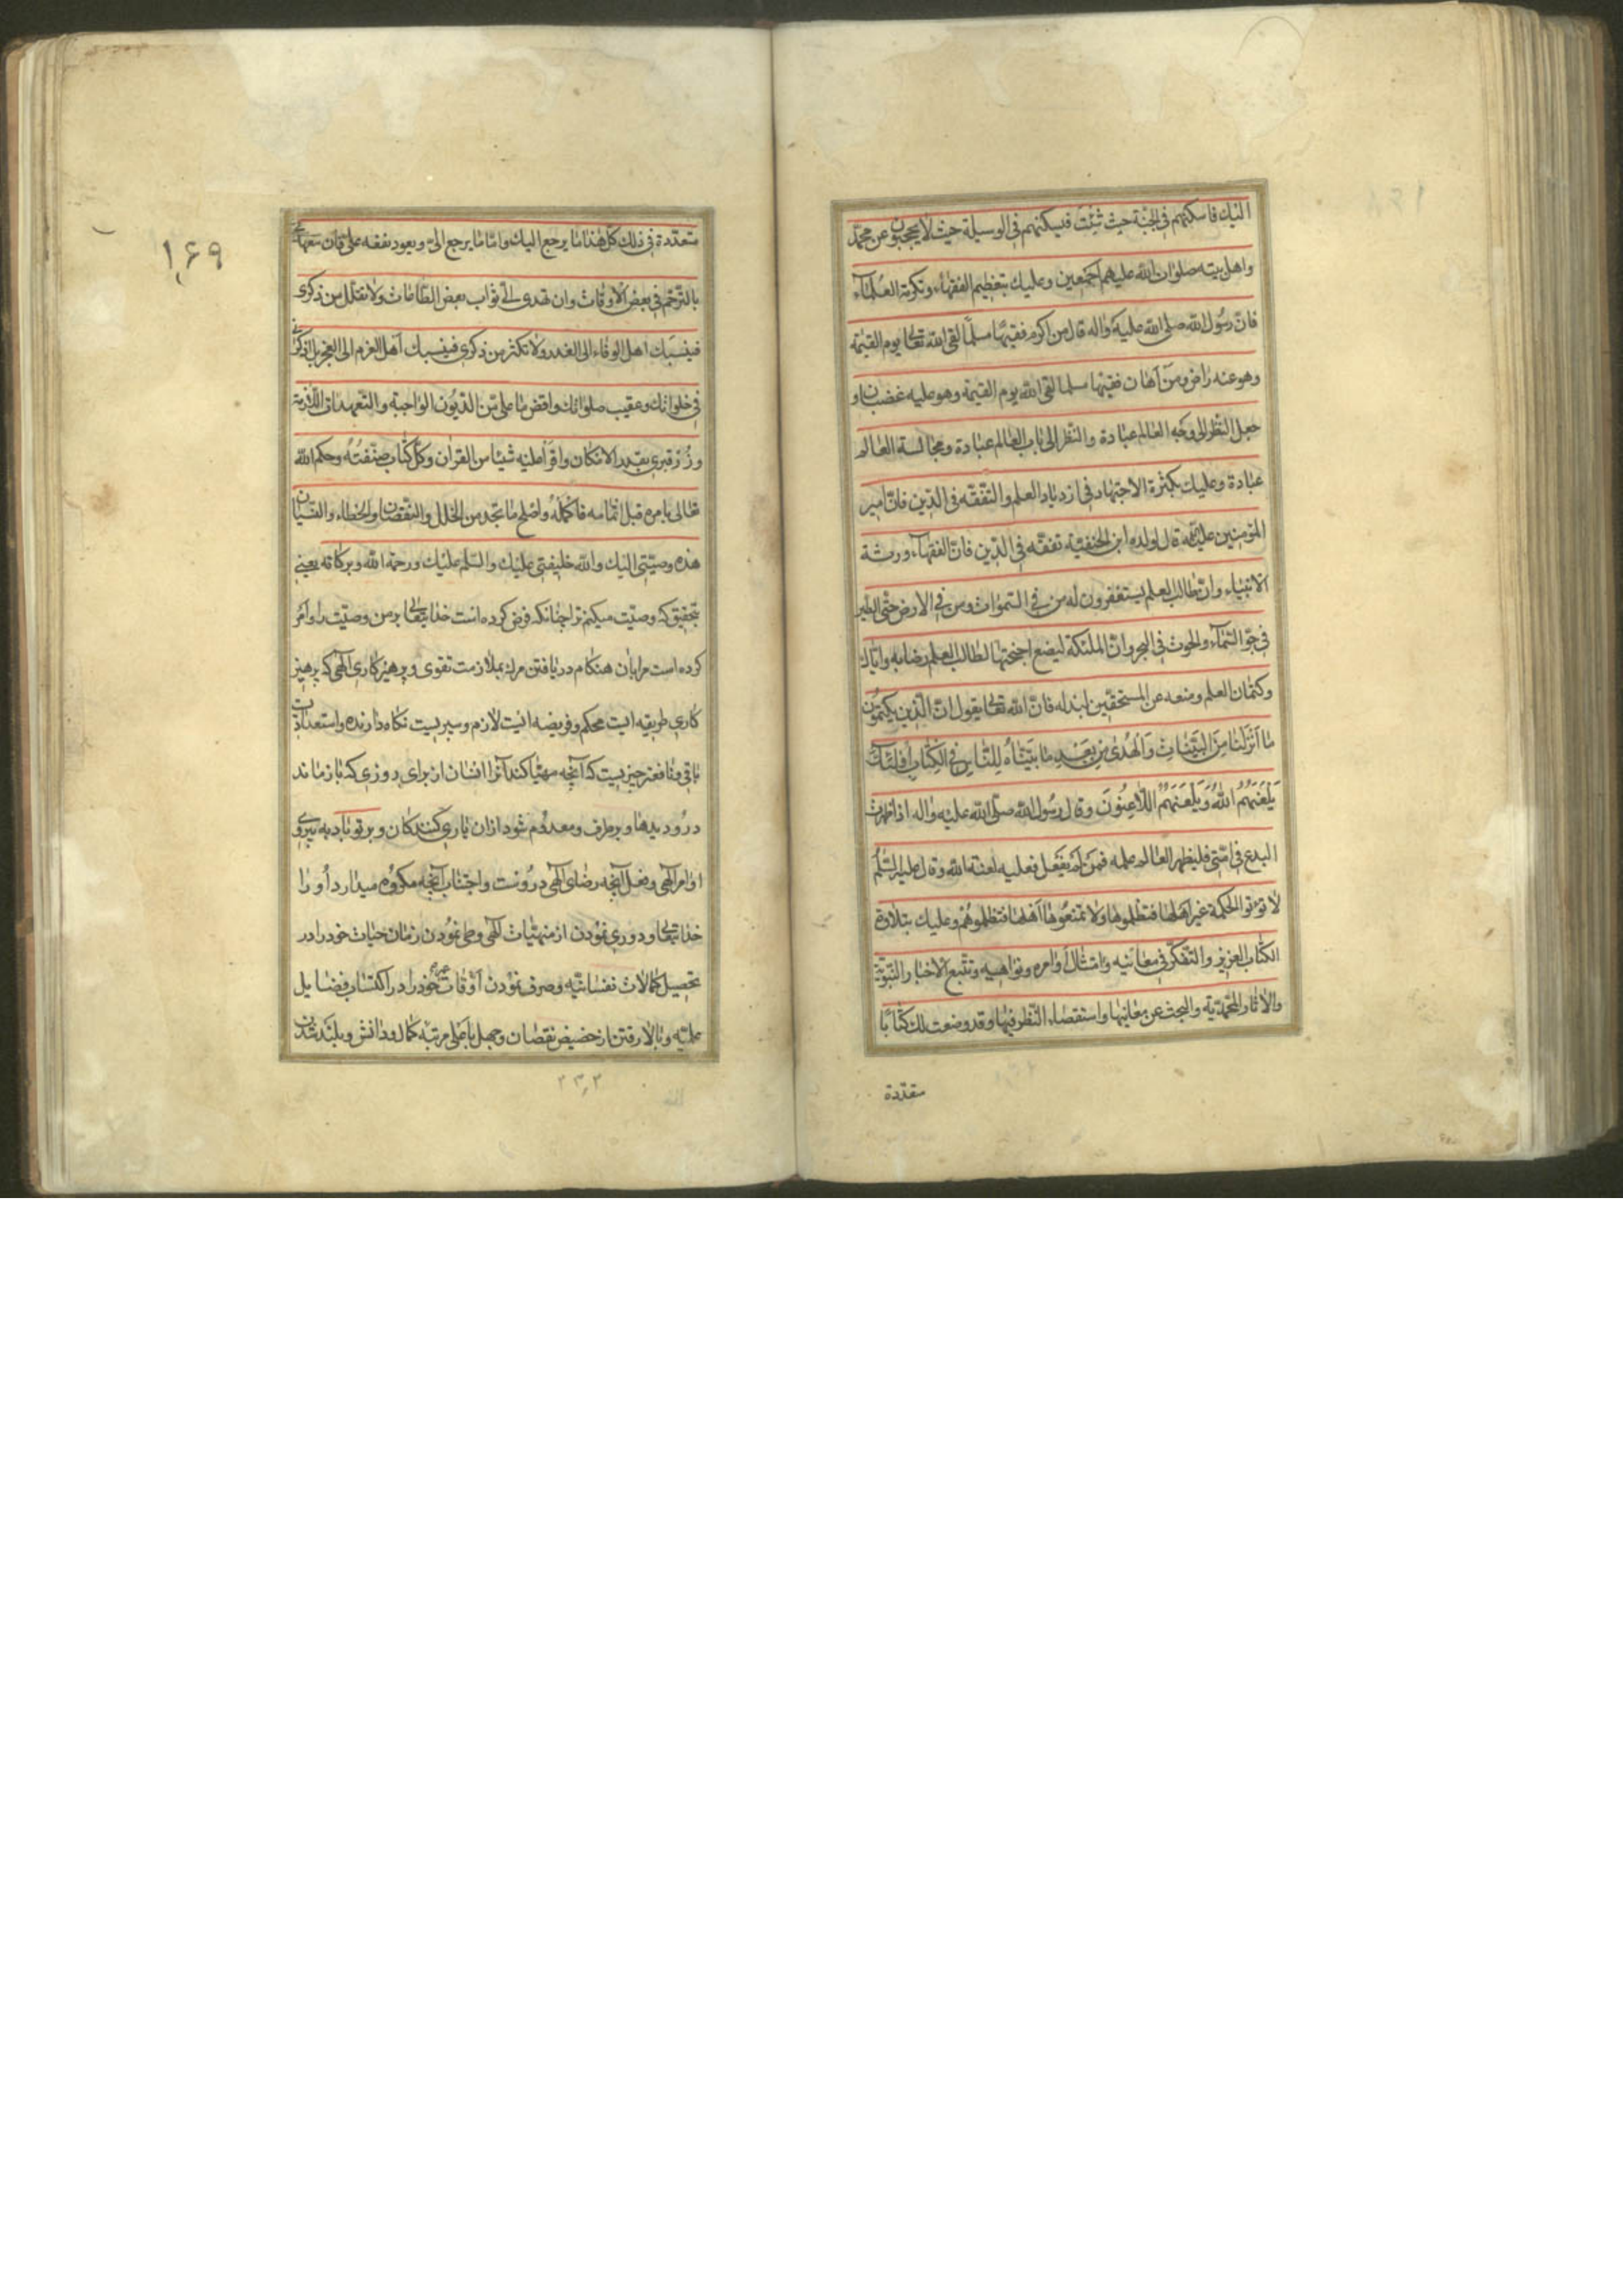 اليك فاسكنهم فى الجنة حيث شئت فيسكنهم فى الوسيلة حيث لا يحجبون عن محمد
واهل بيته صلوات الله عليهم اجمعين وعليك بتعظيم الفقهاء وتكرمة العلماء
فان رسول الله صلى الله عليه واله قال من اكرم فقيها مسلما لقى الله تعالى يوم القيمة
وهو عنه راض ومن اهان فقيها مسلما لقى الله يوم القيمة وهو عليه غضبان و
جعل النظر الى وجه العالم عبادة والنظر الى باب العالم عبادة ومجالسة العالم
عبادة وعليك بكثرة الاجتهاد فى ازدياد العلم والتفقه فى الدين فان امير
المؤمنين عليه قال لولده ابن الحنفية تفقه فى الدين فان الفقهاء ورثة
الانبياء وان طالب العلم يستغفرون له من فى السموات ومن فى الارض حتى الطير
فى جو السماء والحوت فى البحر وان الملئكة ليضع اجنحتها لطالب العلم رضا به واياك
وكتمان العلم ومنعه عن المستحقين لبذله فان الله تعالى يقول ان الذين يكتمون
ما انزلنا من البينات والهدى من بعد ما بيناه للناس فى الكتاب اولئك
يلعنهم الله ويلعنهم اللاعنون وقال رسول الله صلى الله عليه واله اذا ظهرت
البدع فى امتى فليظهر العالم علمه فمن لم يفعل فعليه لعنة الله وقال عليه السلم
لا تؤتوا الحكمة غير اهلها فتظلموها ولا تمنعوها اهلها فتظلموهم وعليك بتلاوة
الكتاب العزيز والتفكر فى معانيه وامتثال اوامره ونواهيه وتتبع الاخبار النبوية
والاثار المحمدية والبحث عن معانيها واستقصاء النظر فيها وقد وضعت لك كتابا
متعددة
۱۶۹
متعددة فى ذلك كل هذا ما يرجع اليك واما ما يرجع الى ويعود نفعه على فان تتعهدنى
بالترحم فى بعض الاوقات وان تهدى الى ثواب بعض الطاعات ولا تقلل من ذكرى
فينسبك اهل الوفاء الى الغدر ولا تكثر من ذكرى فينسبك اهل العزم الى العجز بل اذكرنى
فى خلواتك وعقيب صلواتك واقض ما على من الديون الواجبة والتعهدات اللازمة
وزر قبرى بقدر الامكان واقرأ عليه شيئا من القرآن وكل كتاب صنفته وحكم الله
تعالى بامره قبل اتمامه فاكمله واصلح ما تجد من الخلل والنقصان والخطاء والنسيان
هذه وصيتى اليك والله خليفتى عليك والسلم عليك ورحمة الله وبركاته يعنى
بتحقيق كه وصيت ميكنم ترا چنانكه فرض كرده است خدايتعالى بر من وصيت را و امر
كرده است مرا بان هنكام دريافتن مرك بملازمت تقوى و پرهيزكارى الهى كه پرهيز
كارى طريقه ايست محكم و فريضه ايست لازم و سپريست نكاه دارنده و استعداد
باقى و نافعتر چيزيست كه آنچه مهيا كند آنرا انسان از براى روزى كه باز ماند
در و ديدها و برطرف و معدوم شود ازان يارى كنندكان و بر تو باد به پيروى
اوامر الهى و فعل آنچه رضاى الهى دروست و اجتناب آنچه مكروه ميدارد او را
خدايتعالى و دورى نمودن از منهيات الهى و طى نمودن زمان حيات خود را در
تحصيل كمالات نفسانيه و صرف نمودن اوقات خود را در اكتساب فضايل
علميه و بالا رفتن از حضيض نقصان و جهل باعلى مرتبه كمال و دانش و بلند شدن